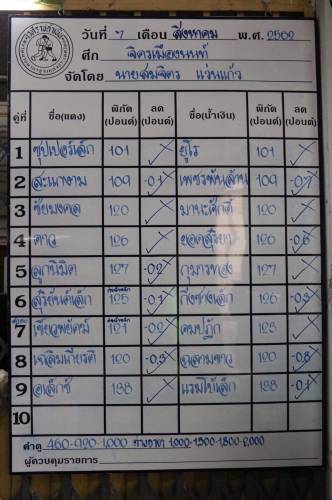 วันที่ 7 เดือน สิงหาคม พ.ศ. 2562
ศึก จิตรเมืองนนท์
จัดโดย นายสมจิตร แว่นแก้ว
คู่ที่ ชื่อ(แดง) พิกัด (ปอนด์) ลด (ปอนด์) ชื่อ(น้ำเงิน) พิกัด (ปอนด์) ลด (ปอนด์)
1 ซุปเปอร์เล็ก 101 ยูโร 101
2 สะแกงาม 109 -0.1 เพชรพันล้าน 109 -0.7
3 ชัยมงคล 120 มานะศักดิ์ 120
4 ดาว 126 ยอดสุริยา 126 -0.6
5 ลูกนิมิต 127 -0.2 กุมารทอง 127
6 สุริยันต์เล็ก 125 -0.1 กิ่งซางเล็ก 126 -0.3
7 เขี้ยวพยัคฆ์ 121 -0.2 คมปฏัก 123
8 เฉลิมเกียรติ 120 -0.3 ฉลามขาว 120 -0.8
9 อเล็กซ์ 138 แรมโบ้เล็ก 138 -0.1
10
ค่าดู 460-920-1,000 1,000-1,500-1,800-2,000
ผู้ควบคุมรายการ